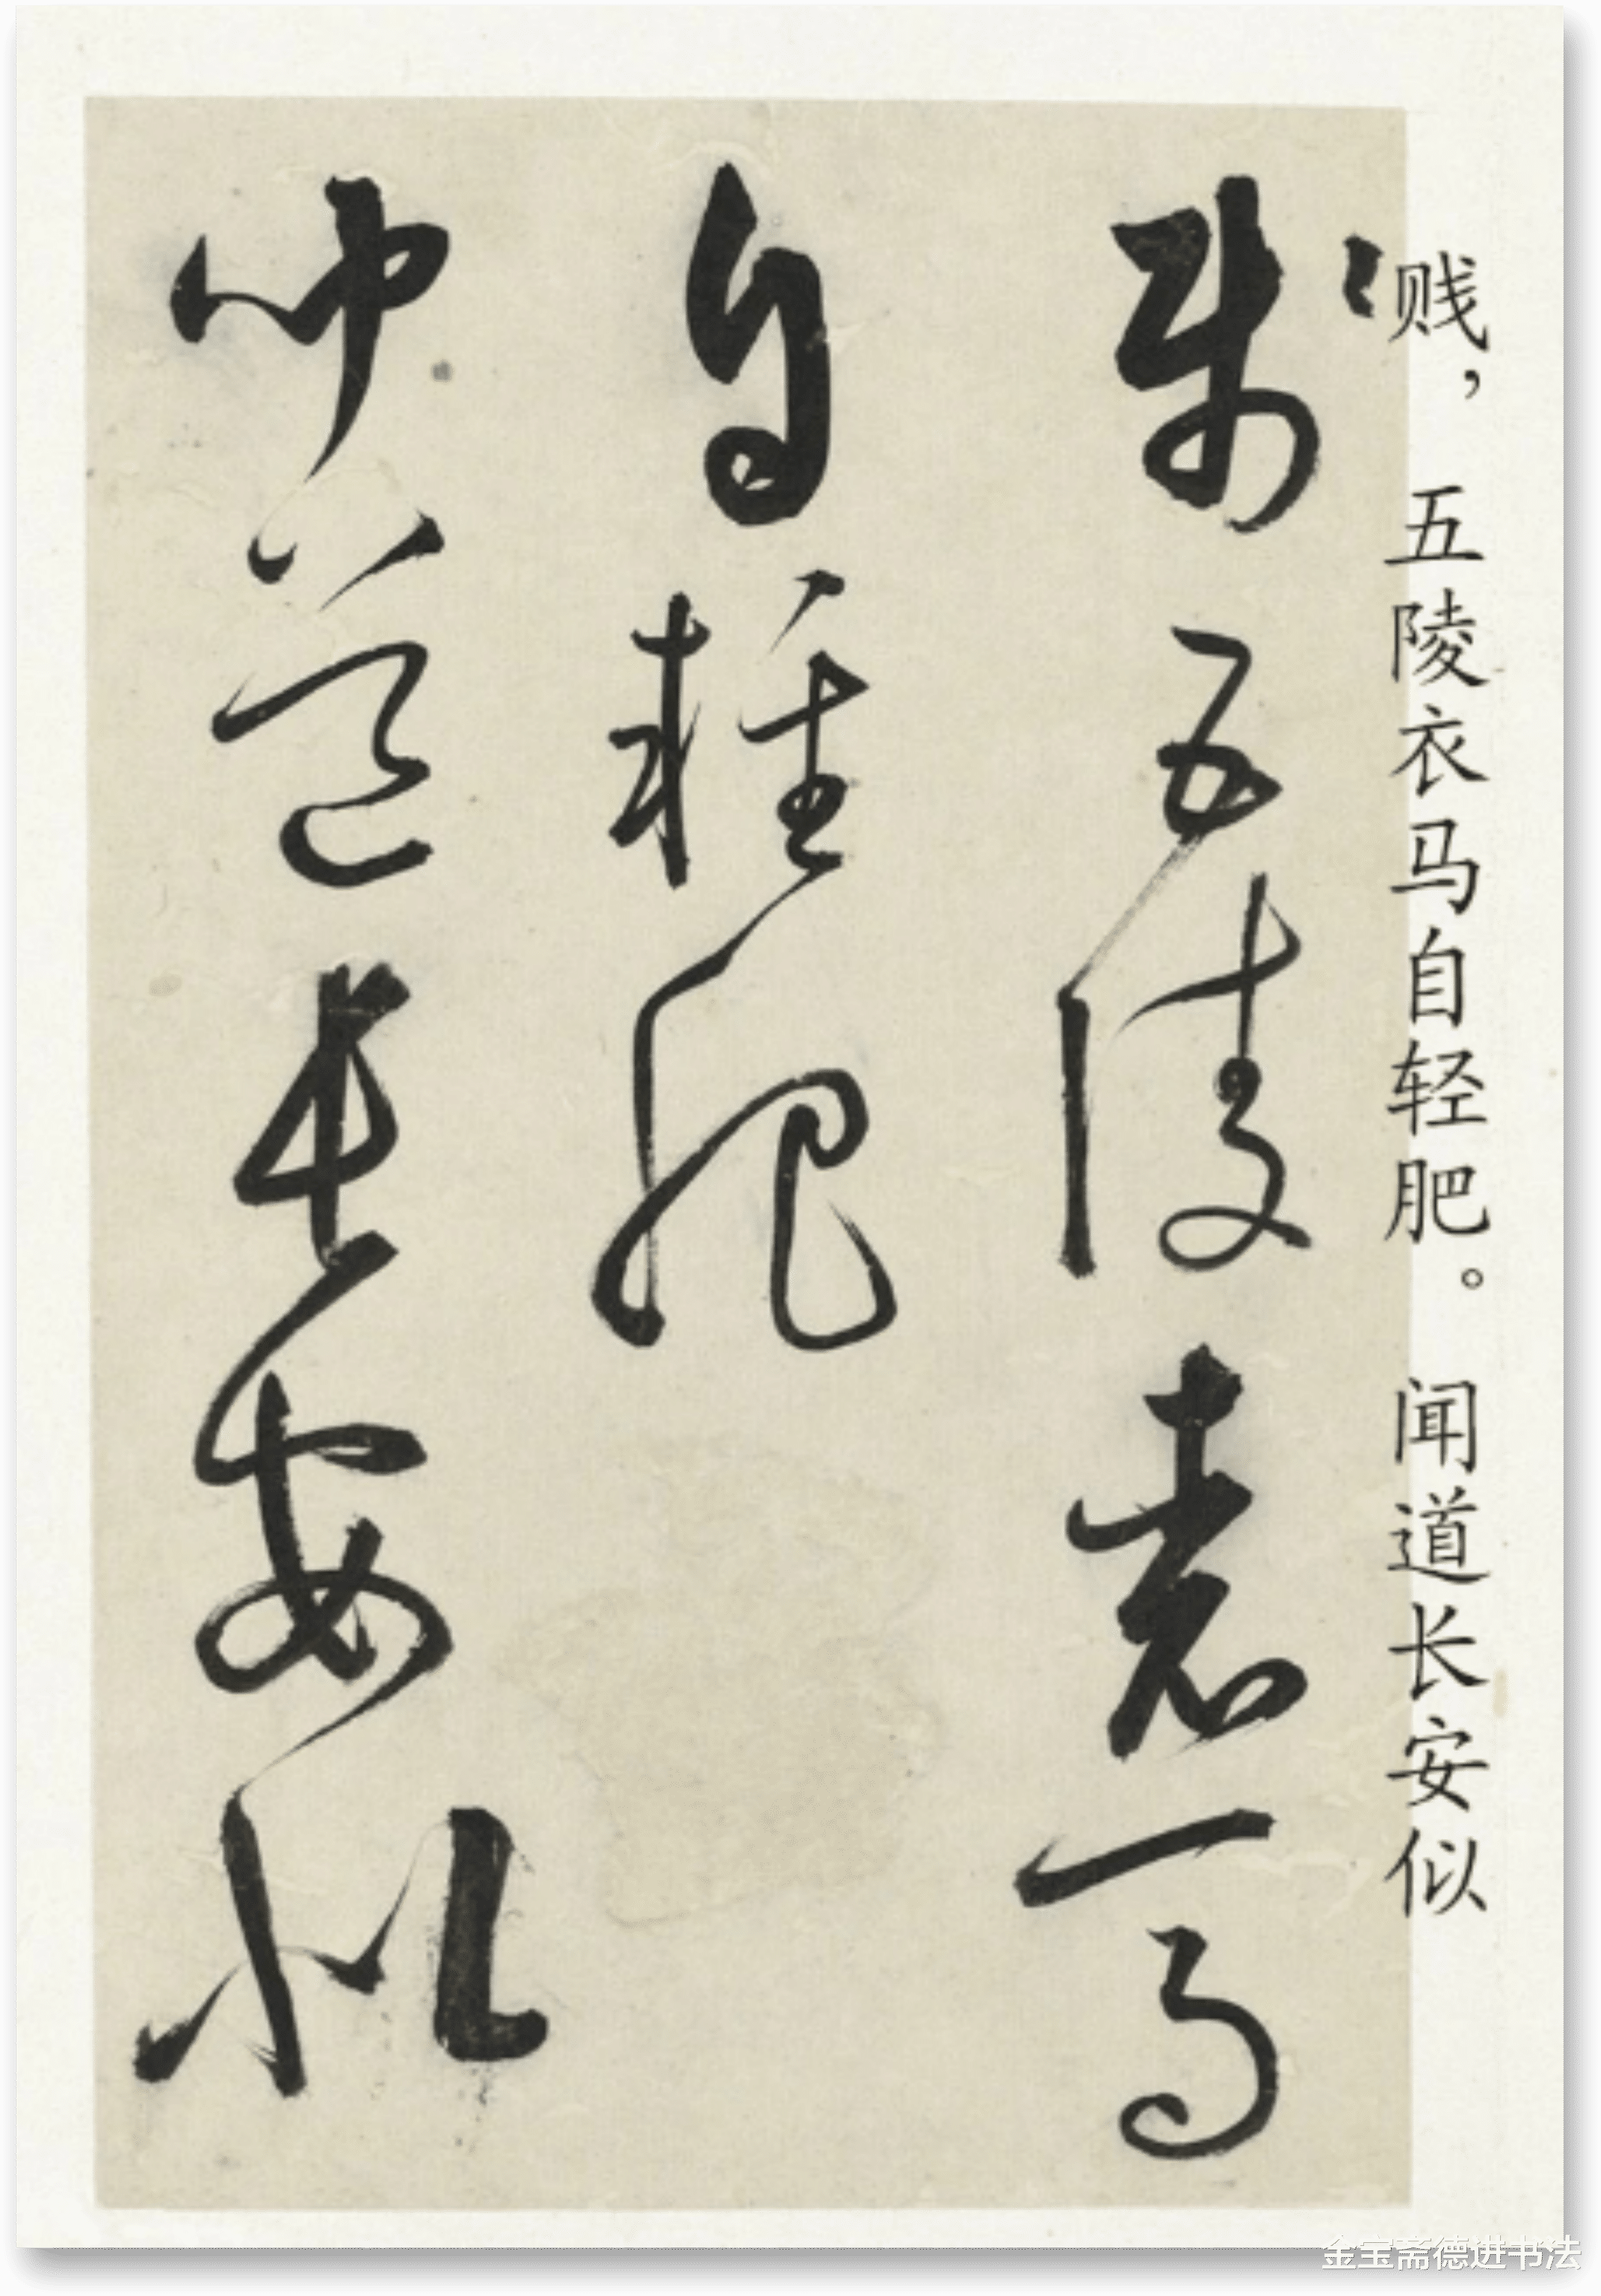 贱，五陵衣马自轻肥。闻道长安似
賤五陵裘馬
自輕肥
聞道長安似
金宝斋德进书法